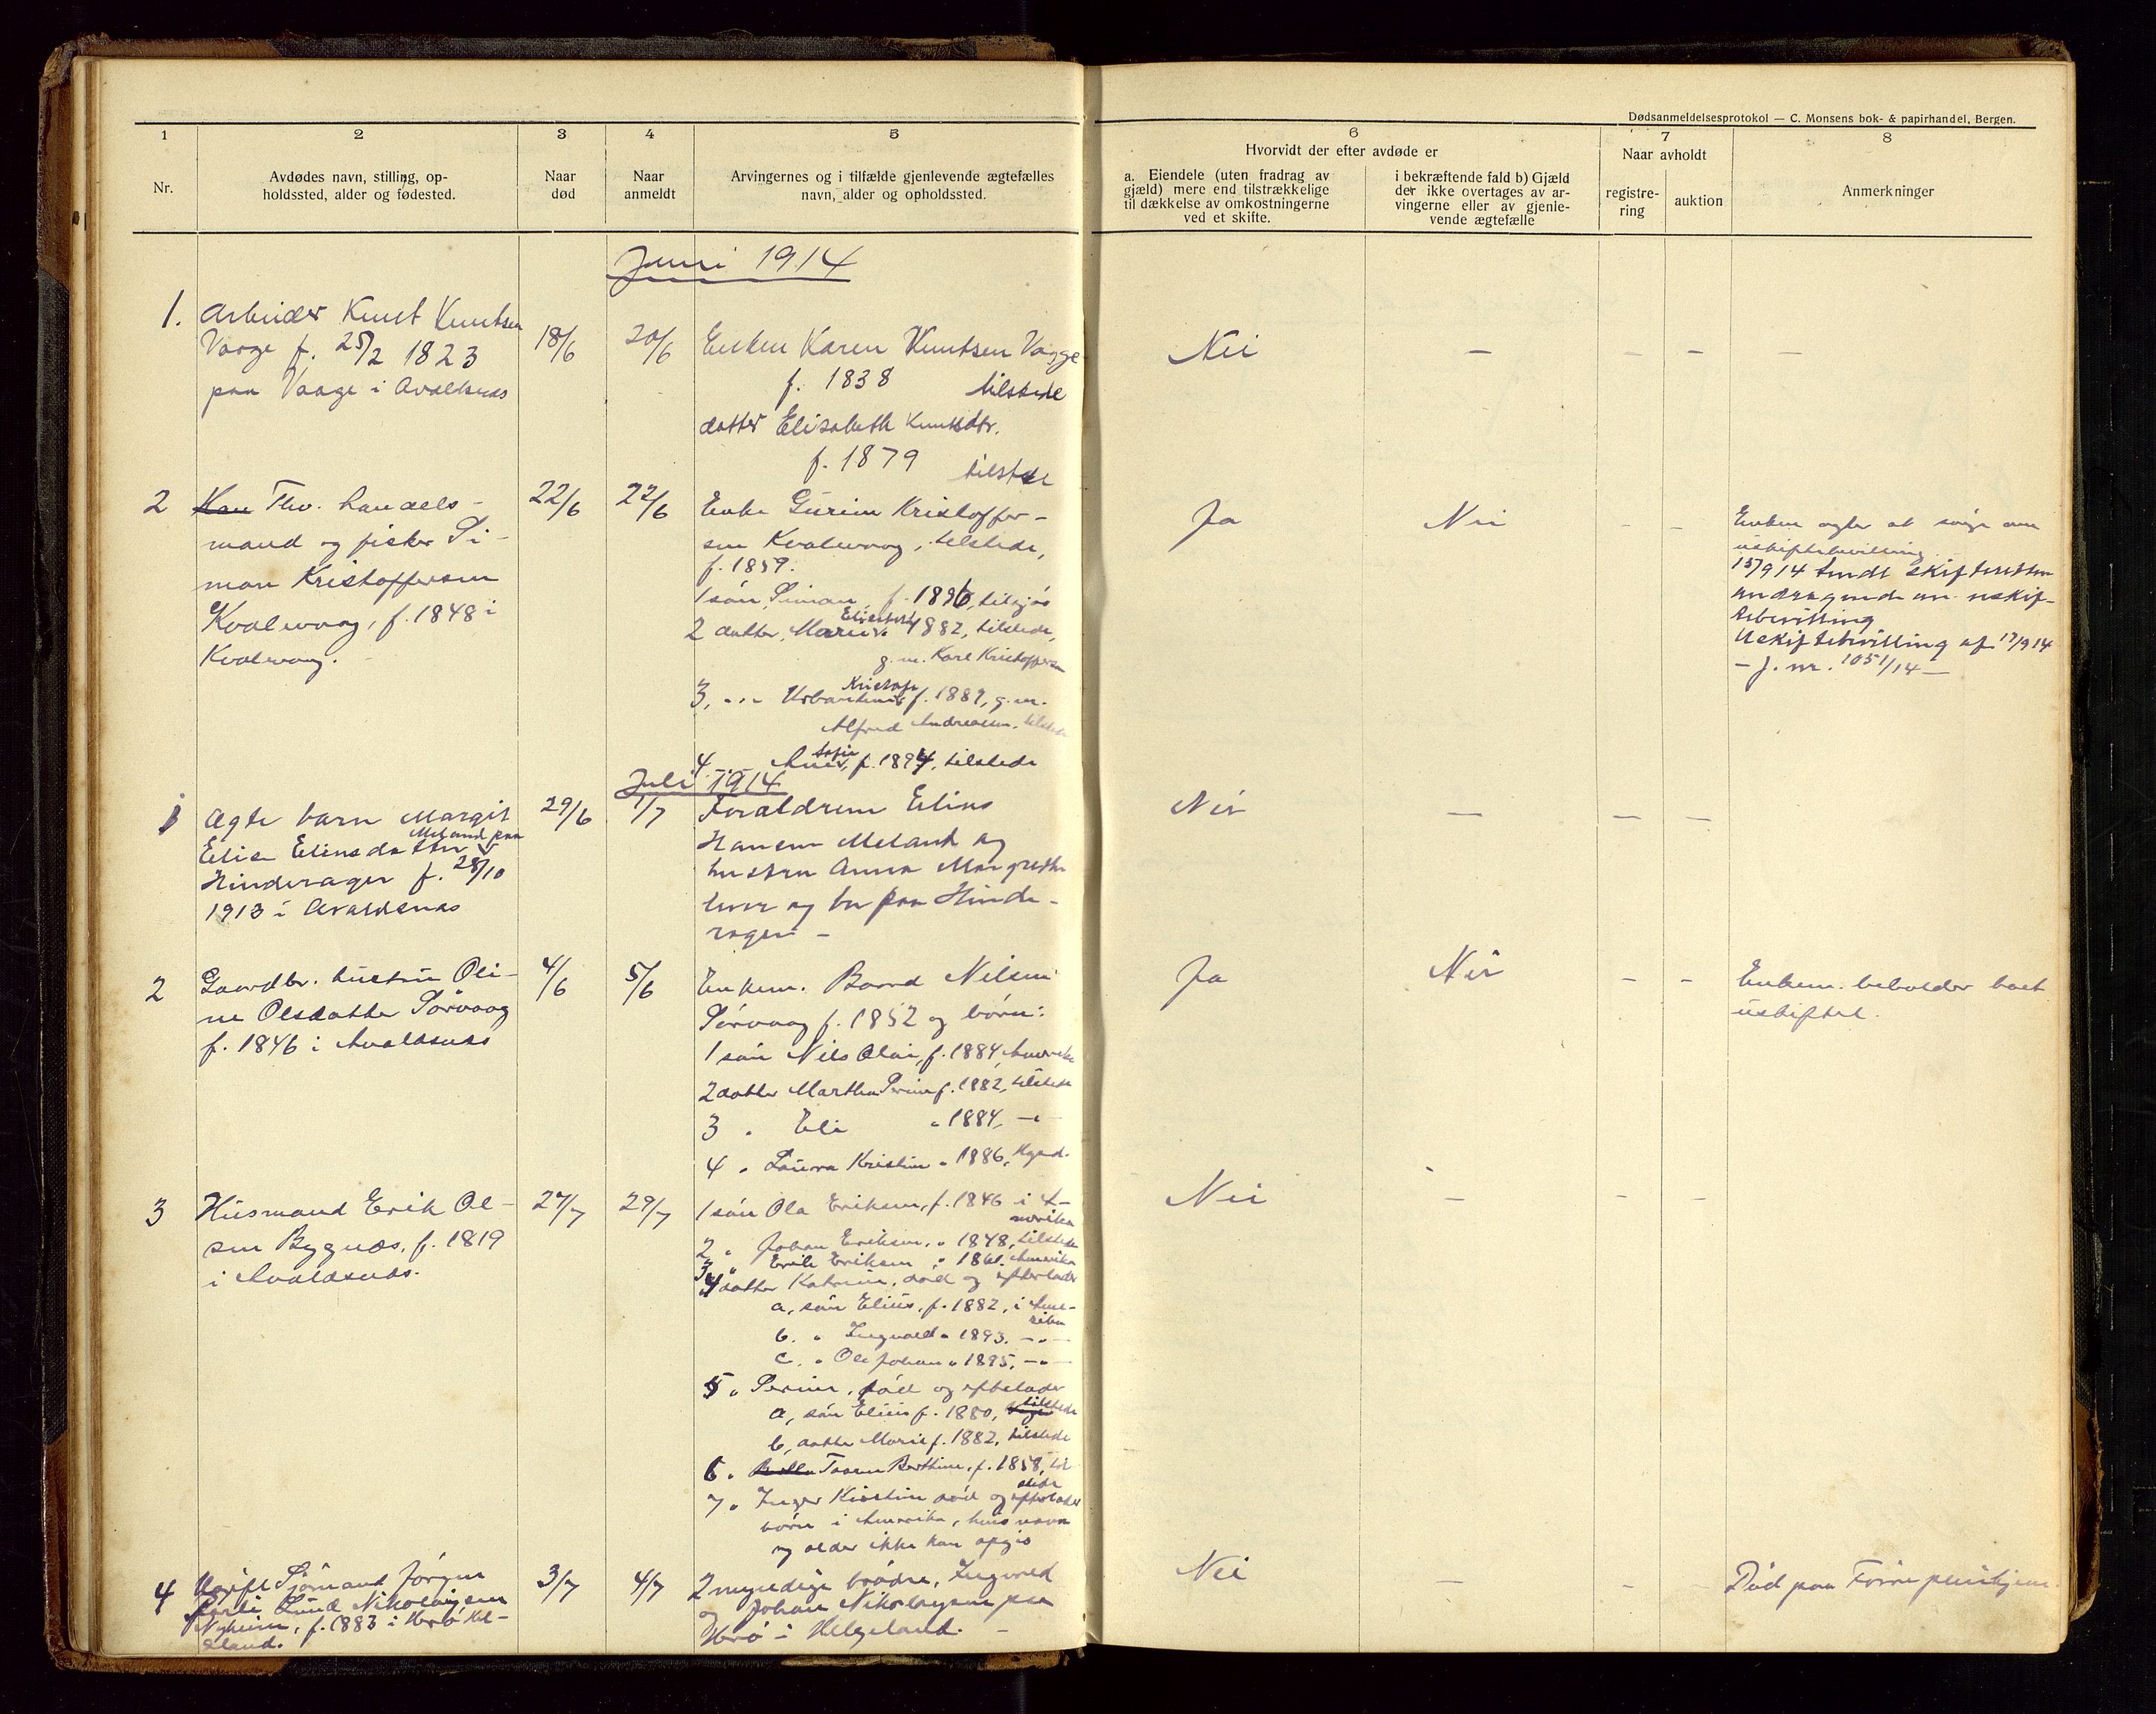 Dødsanmeldelsesprotokol — C. Monsens bok- & papirhandel, Bergen.
1
2
3
4
5
6
7
8
Nr.
Avdødes navn, stilling, op-
holdssted, alder og fødested.
Naar
død
Naar
anmeldt
Arvingernes og i tilfælde gjenlevende ægtefælles
navn, alder og opholdssted.
Hvorvidt der efter avdøde er
a. Eiendele (uten fradrag av
gjæld) mere end tilstrækkelige
til dækkelse av omkostningerne
ved et skifte.
i bekræftende fald b) Gjæld
der ikke overtages av ar-
vingerne eller av gjenle-
vende ægtefælle
Naar avholdt
registre-
ring
auktion
Anmerkninger
Juni 1914
1.
Arbeider Knut Knutsen
Vaage f. 25/2 1823
paa Vaage i Avaldsnes
18/6
20/6
Enken Karen Knutsen Vaage
f. 1838 tilstede
datter Elisabeth Knutsdtr.
f. 1879 tilstede
Nei
— — — —
2
Thv. handels-
mand og fisker Si-
mon Kristoffersen
Kvalevaag, f. 1848 i
Kvalevaag.
22/6
27/6
Enke Gurine Kristoffer-
sen Kvalevaag, tilstede,
f. 1859.
1 søn Simon f. 1896, tilsjøs
2 datter, Marie 1882, tilstede,
g. m. Karl Kristoffersen
3, -"- f. 1889, g. m.
Alfred Andreassen, tilstede
4 Sofie, f. 1894, tilstede
Ja
Nei
- -
Enken agter at søge om
uskiftebevilling.
15/9 14 sendt skifteretten
andragende om uskif-
tebevilling
Uskiftebevilling af 17/9 14
- J. nr. 1051/14 -
Juli 1914
1
Ægte barn Margit
Meland paa
Elise Elinsdatter
Hinderager f. 28/10
1913 i Avaldsnes
29/6
1/7
Forældrene Elins
Hansen Meland og
hustru Anna Margrethe
lever og bor paa Hinde-
rager -
Nei
— — —
2
Gaardbr. hustru Oli-
ne Olsdatter Sørvaag
f. 1846 i Avaldsnes
4/6
5/6
Enkem. Baard Nilsen
Sørvaag f. 1852 og børn:
1 søn Nils Olai, f. 1884, Amerika
2 datter Martha Serine f. 1882, tilstede
3 " Eli " 1884, -"-
4 " Laura Kristine " 1886,
Ja
Nei
- -
Enkem. beholder boet
uskiftet.
3
Husmand Erik Ol-
sen Bygnes, f. 1819
i Avaldsnes.
27/7
29/7
1 søn Ola Eriksen, f. 1846 i A-
merika
2 " Johan Eriksen, " 1848, tilstede
3 " Erik Eriksen " 1861. Amerika
4 datter Katrine, død og efterlader
a, søn Elius, f. 1882, i Ame-
rika
b. " Ingvald " 1893. -"-
c. " Ole Johan " 1895, -"-
5 " Serine, død og efterlader
a, søn Elius f. 1880, tilstede
b, datter Marie f. 1882, tilstede
6 " Berthine, f. 1858, til-
stede
7 " Inger Kristine død og efterlader
børn i Amerika, hvis navn
og alder ikke kan opgis
Nei
- - -
4
Ugift Sjømand Jørgen
Lund Nikolaysen
f. 1883 i Herø Hel-
geland.
3/7
4/7
2 myndige brødre, Ingvald
og Johan Nikolaysen paa
Herø i Helgeland. -
Nei
— - -
Død paa Førre pleiehjem.